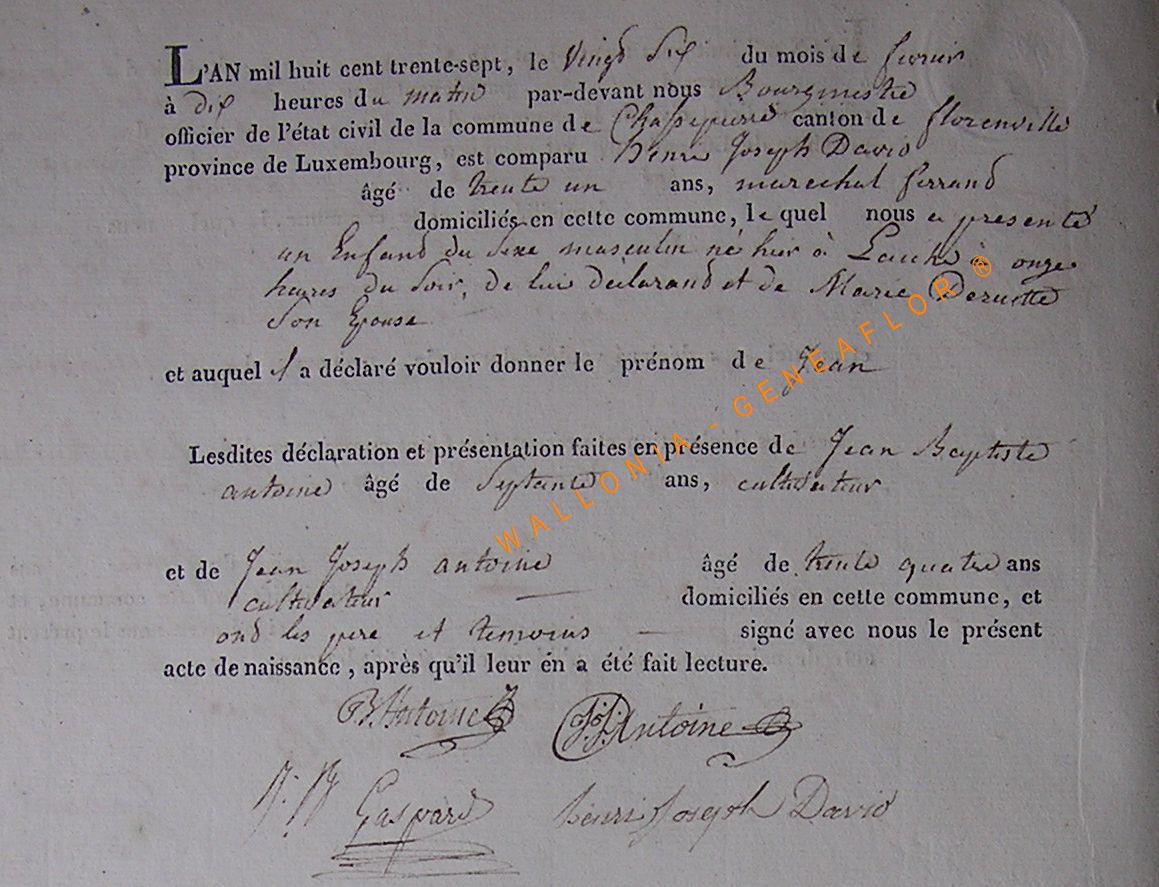 L'AN mil huit cent trente-sept, le vingt six du mois de fevrier
à dix heures du matin par-devant nous Bourgmestre
officier de l'état civil de la commune de Chassepierre canton de florenville
province de Luxembourg, est comparu henri Joseph David
âgé de trente un ans, marechal ferrand
domiciliés en cette commune, le quel nous a presenté
un Enfand du Sexe masculin né hier à Laiche à onze
heures du Soir, de lui declarand et de Marie Deruette
Son Epouse
et auquel il a déclaré vouloir donner le prénom de Jean
Lesdites déclaration et présentation faites en présence de Jean Baptiste
antoine âgé de Septante ans, cultivateur
et de Jean Joseph antoine âgé de trente quatre ans
cultivateur — domiciliés en cette commune, et
ond les pere et temoins — signé avec nous le présent
acte de naissance, après qu'il leur en a été fait lecture.
B Antoine J J Antoine
Gaspard henri Joseph David
WALLONIA - GENEAFLOR ®